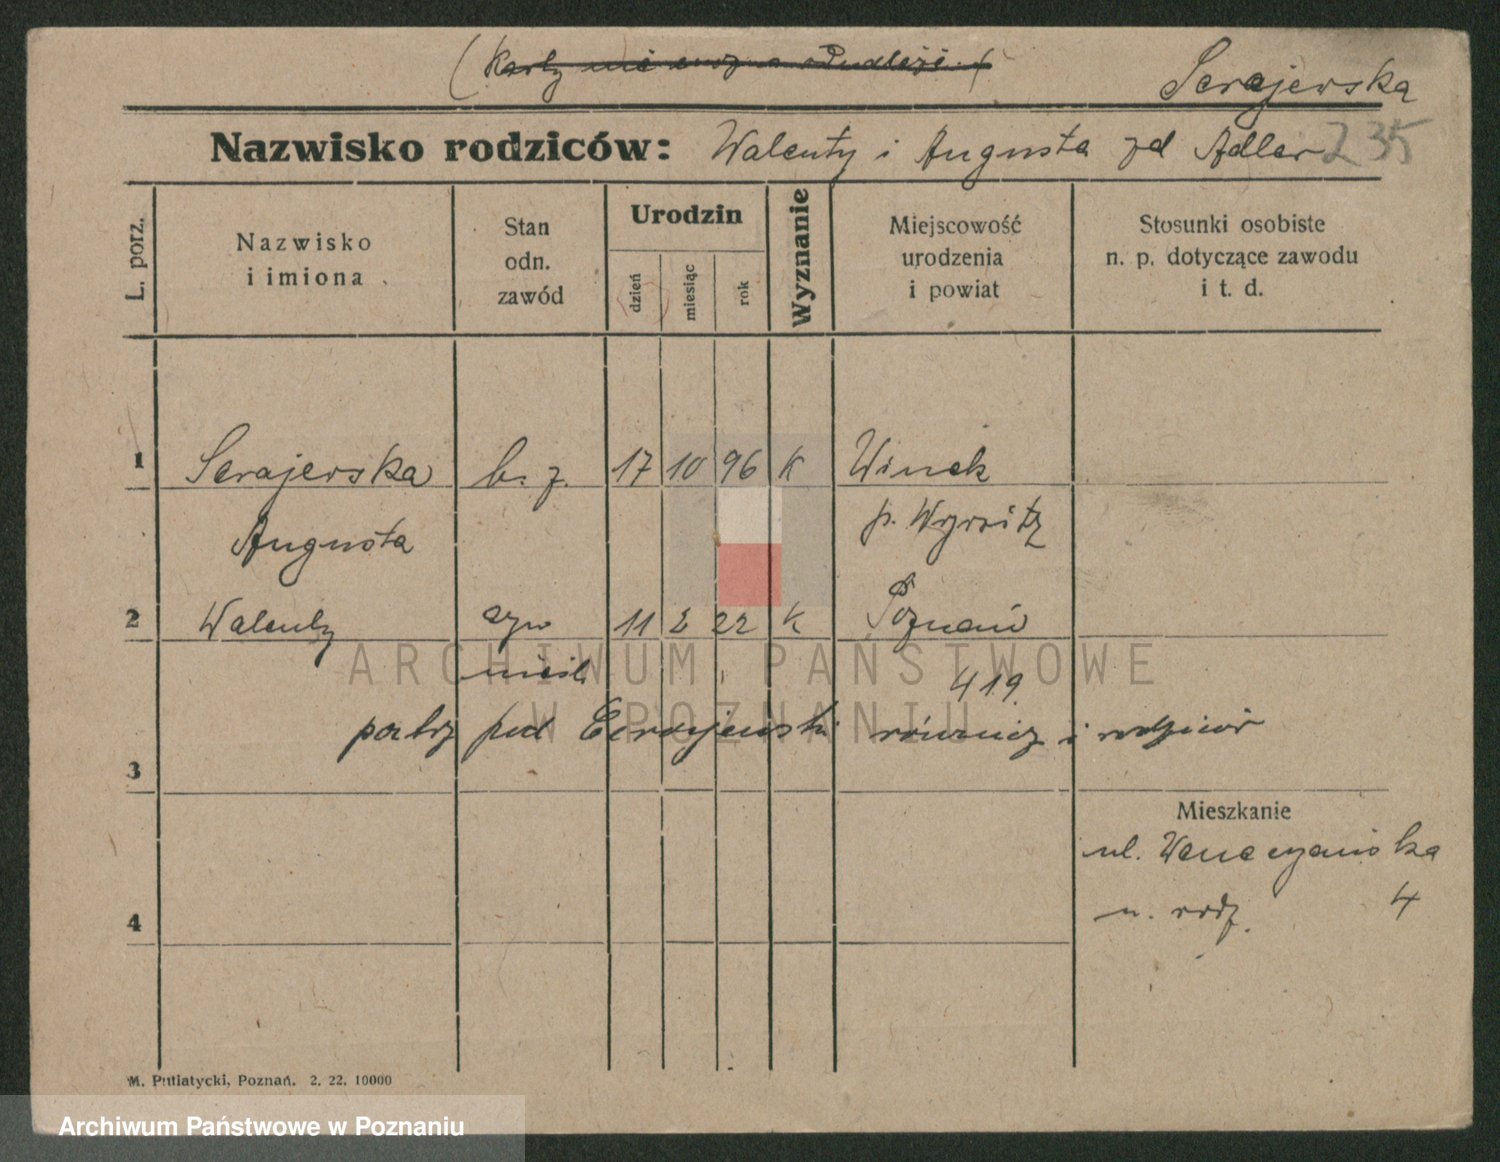 (Karty nie
Serejewska
Nazwisko rodziców: Walenty i Augusta zd Adler 235
L. porz.
Nazwisko i imiona
Stan odn. zawód
Urodzin
dzień
miesiąc
rok
Wyznanie
Miejscowość urodzenia i powiat
Stosunki osobiste n. p. dotyczące zawodu i t. d.
1 Serajewska b. z. 17 10 96 K Winek
Augusta p. Wyrsitz
2 Walenty syn 11 2 22 K Poznań
nieśl. 419
patrz pod również i rodziców
3
Mieszkanie
ul.
n. rodz. 4
4
M. Putiatycki, Poznań. 2. 22. 10000
ARCHIWUM PAŃSTWOWE
W POZNANIU
Archiwum Państwowe w Poznaniu